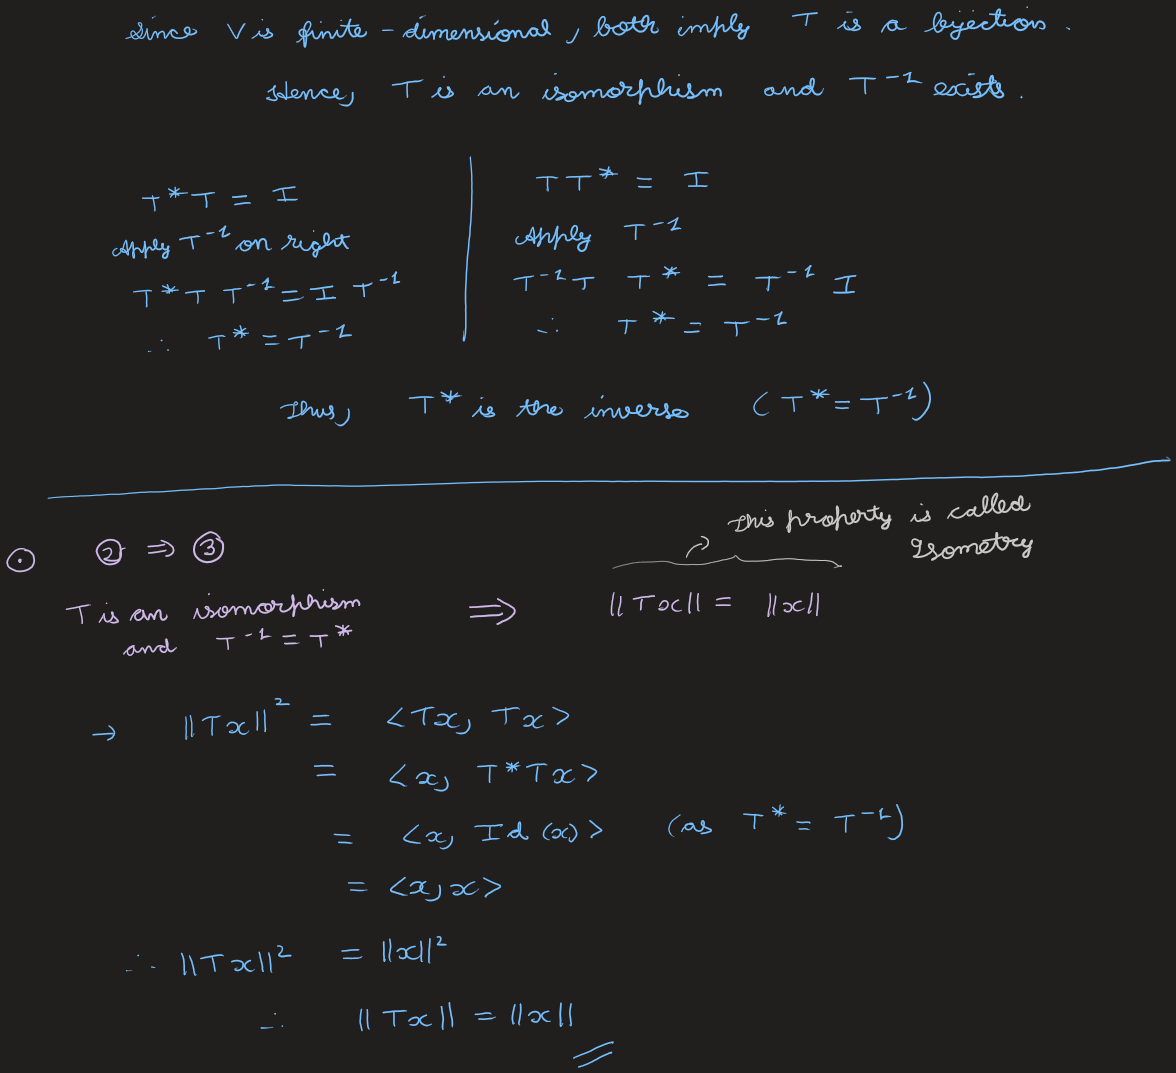 Since V is finite-dimensional, both imply T is a bijection.
Hence, T is an isomorphism and T⁻¹ exists.
T*T = I
Apply T⁻¹ on right
T*T T⁻¹ = I T⁻¹
∴ T* = T⁻¹
TT* = I
Apply T⁻¹
T⁻¹T T* = T⁻¹ I
∴ T* = T⁻¹
Thus, T* is the inverse (T* = T⁻¹)
This property is called
Isometry
⊙ ② ⇒ ③
T is an isomorphism
and T⁻¹ = T*
⇒ ||Tx|| = ||x||
→ ||Tx||² = <Tx, Tx>
= <x, T*Tx>
= <x, Id(x)> (as T* = T⁻¹)
= <x, x>
∴ ||Tx||² = ||x||²
∴ ||Tx|| = ||x||